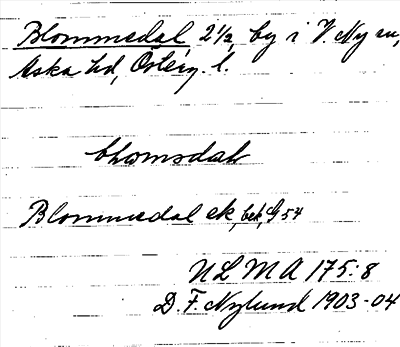 Blommedal 2 1/2, by i V. Ny sn,
Aska hd, Österg. l.
blomsdal
Blommedal ek, bek, G 54
NLMA 175:8
D. F. Nylund 1903-04